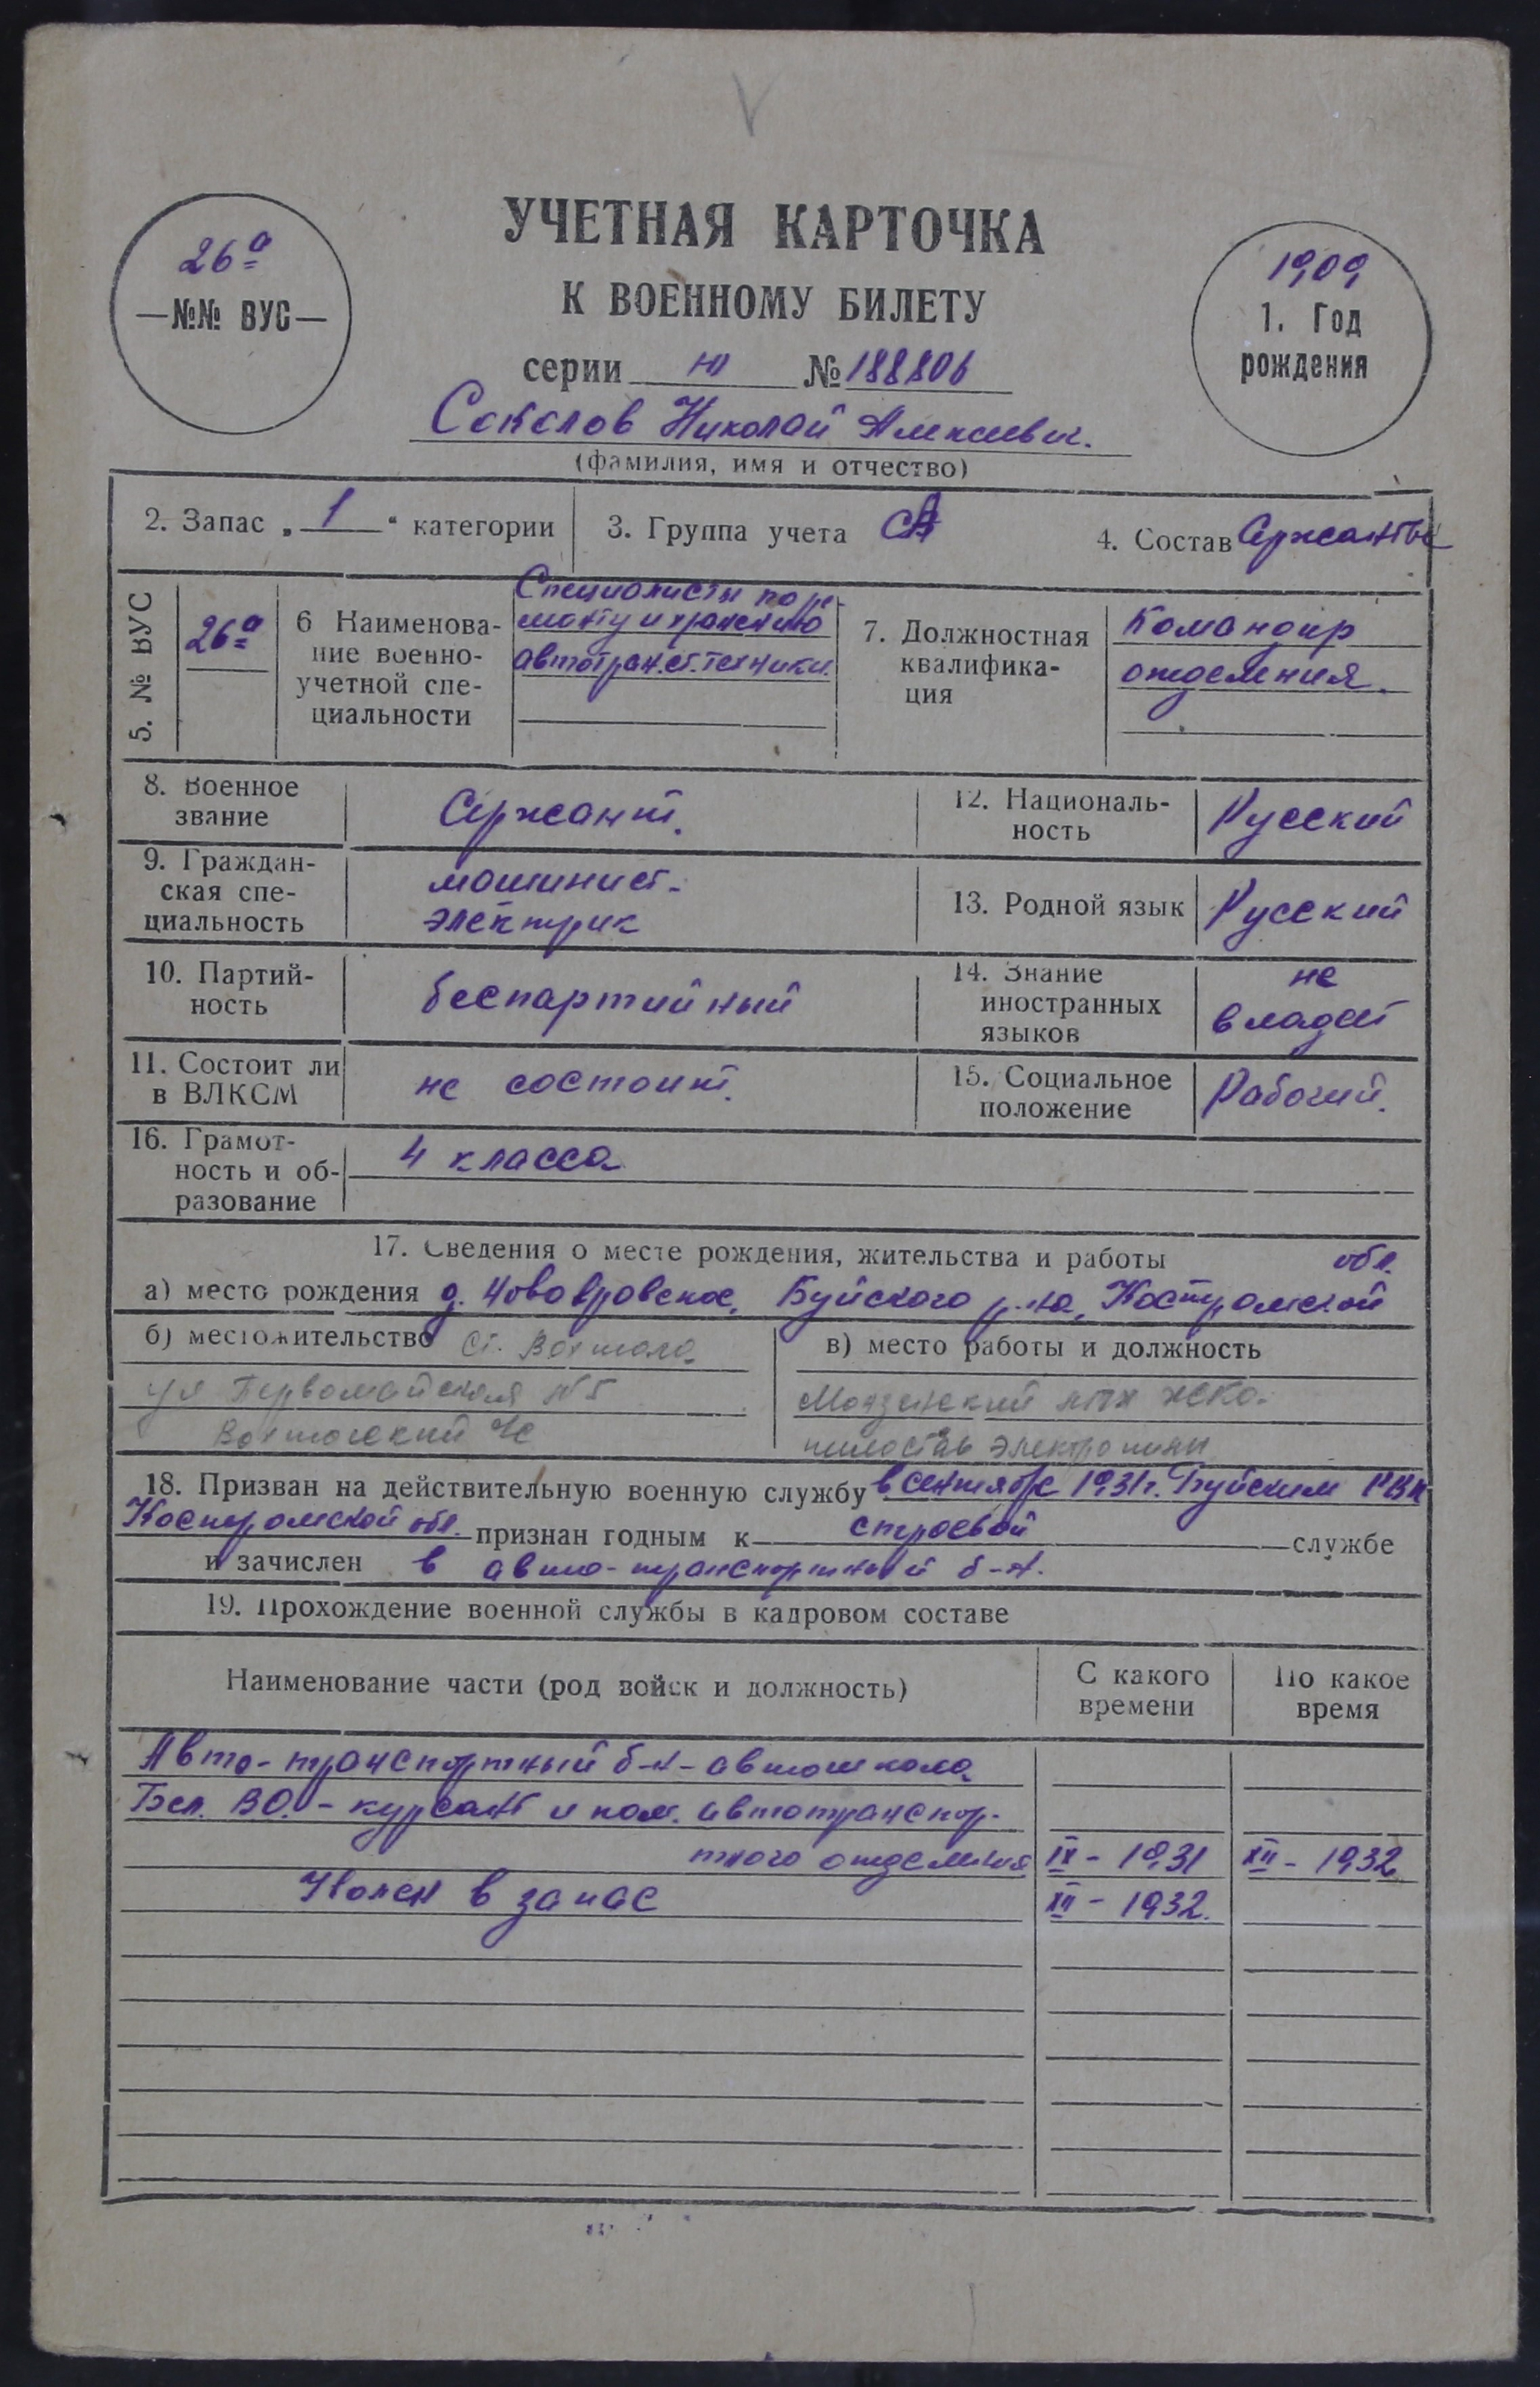 УЧЕТНАЯ КАРТОЧКА
К ВОЕННОМУ БИЛЕТУ
26а
—№№ ВУС—
1909
1. Год
рождения
серии Ю № 188806
Соколов Николай Алексеевич.
(фамилия, имя и отчество)
2. Запас „ 1 “ категории
3. Группа учета СА
4. Состав Сержанты
5. № ВУС
26а
6 Наименова-
ние военно-
учетной спе-
циальности
Специалисты по ре-
монту и хранению
автотран.ст. техники.
7. Должностная
квалифика-
ция
Командир
отделения.
8. Военное
звание
Сержант.
12. Националь-
ность
Русский
9. Граждан-
ская спе-
циальность
машинист-
электрик
13. Родной язык
Русский
10. Партий-
ность
беспартийный
14. Знание
иностранных
языков
не
владеет
11. Состоит ли
в ВЛКСМ
не состоит.
15. Социальное
положение
Рабочий.
16. Грамот-
ность и об-
разование
4 класса
17. Сведения о месте рождения, жительства и работы
обл.
а) место рождения д. Буйского р-на, Костромской
б) местожительство ст. Вохтога
ул Первомайская №5
Вохтогский
в) место работы и должность
Монзенский лпх
электропилы
18. Призван на действительную военную службу в сентябре 1931г. Буйским РВК
Костромской обл. признан годным к строевой службе
и зачислен в авто-транспортный б-н.
19. Прохождение военной службы в кадровом составе
Наименование части (род войск и должность)
С какого
времени
По какое
время
Авто-транспортный б-н-автошкола
Бел. ВО. - курсант и ком. автотранспор-
тного отделения IX - 1931 XII - 1932
Уволен в запас XII - 1932.